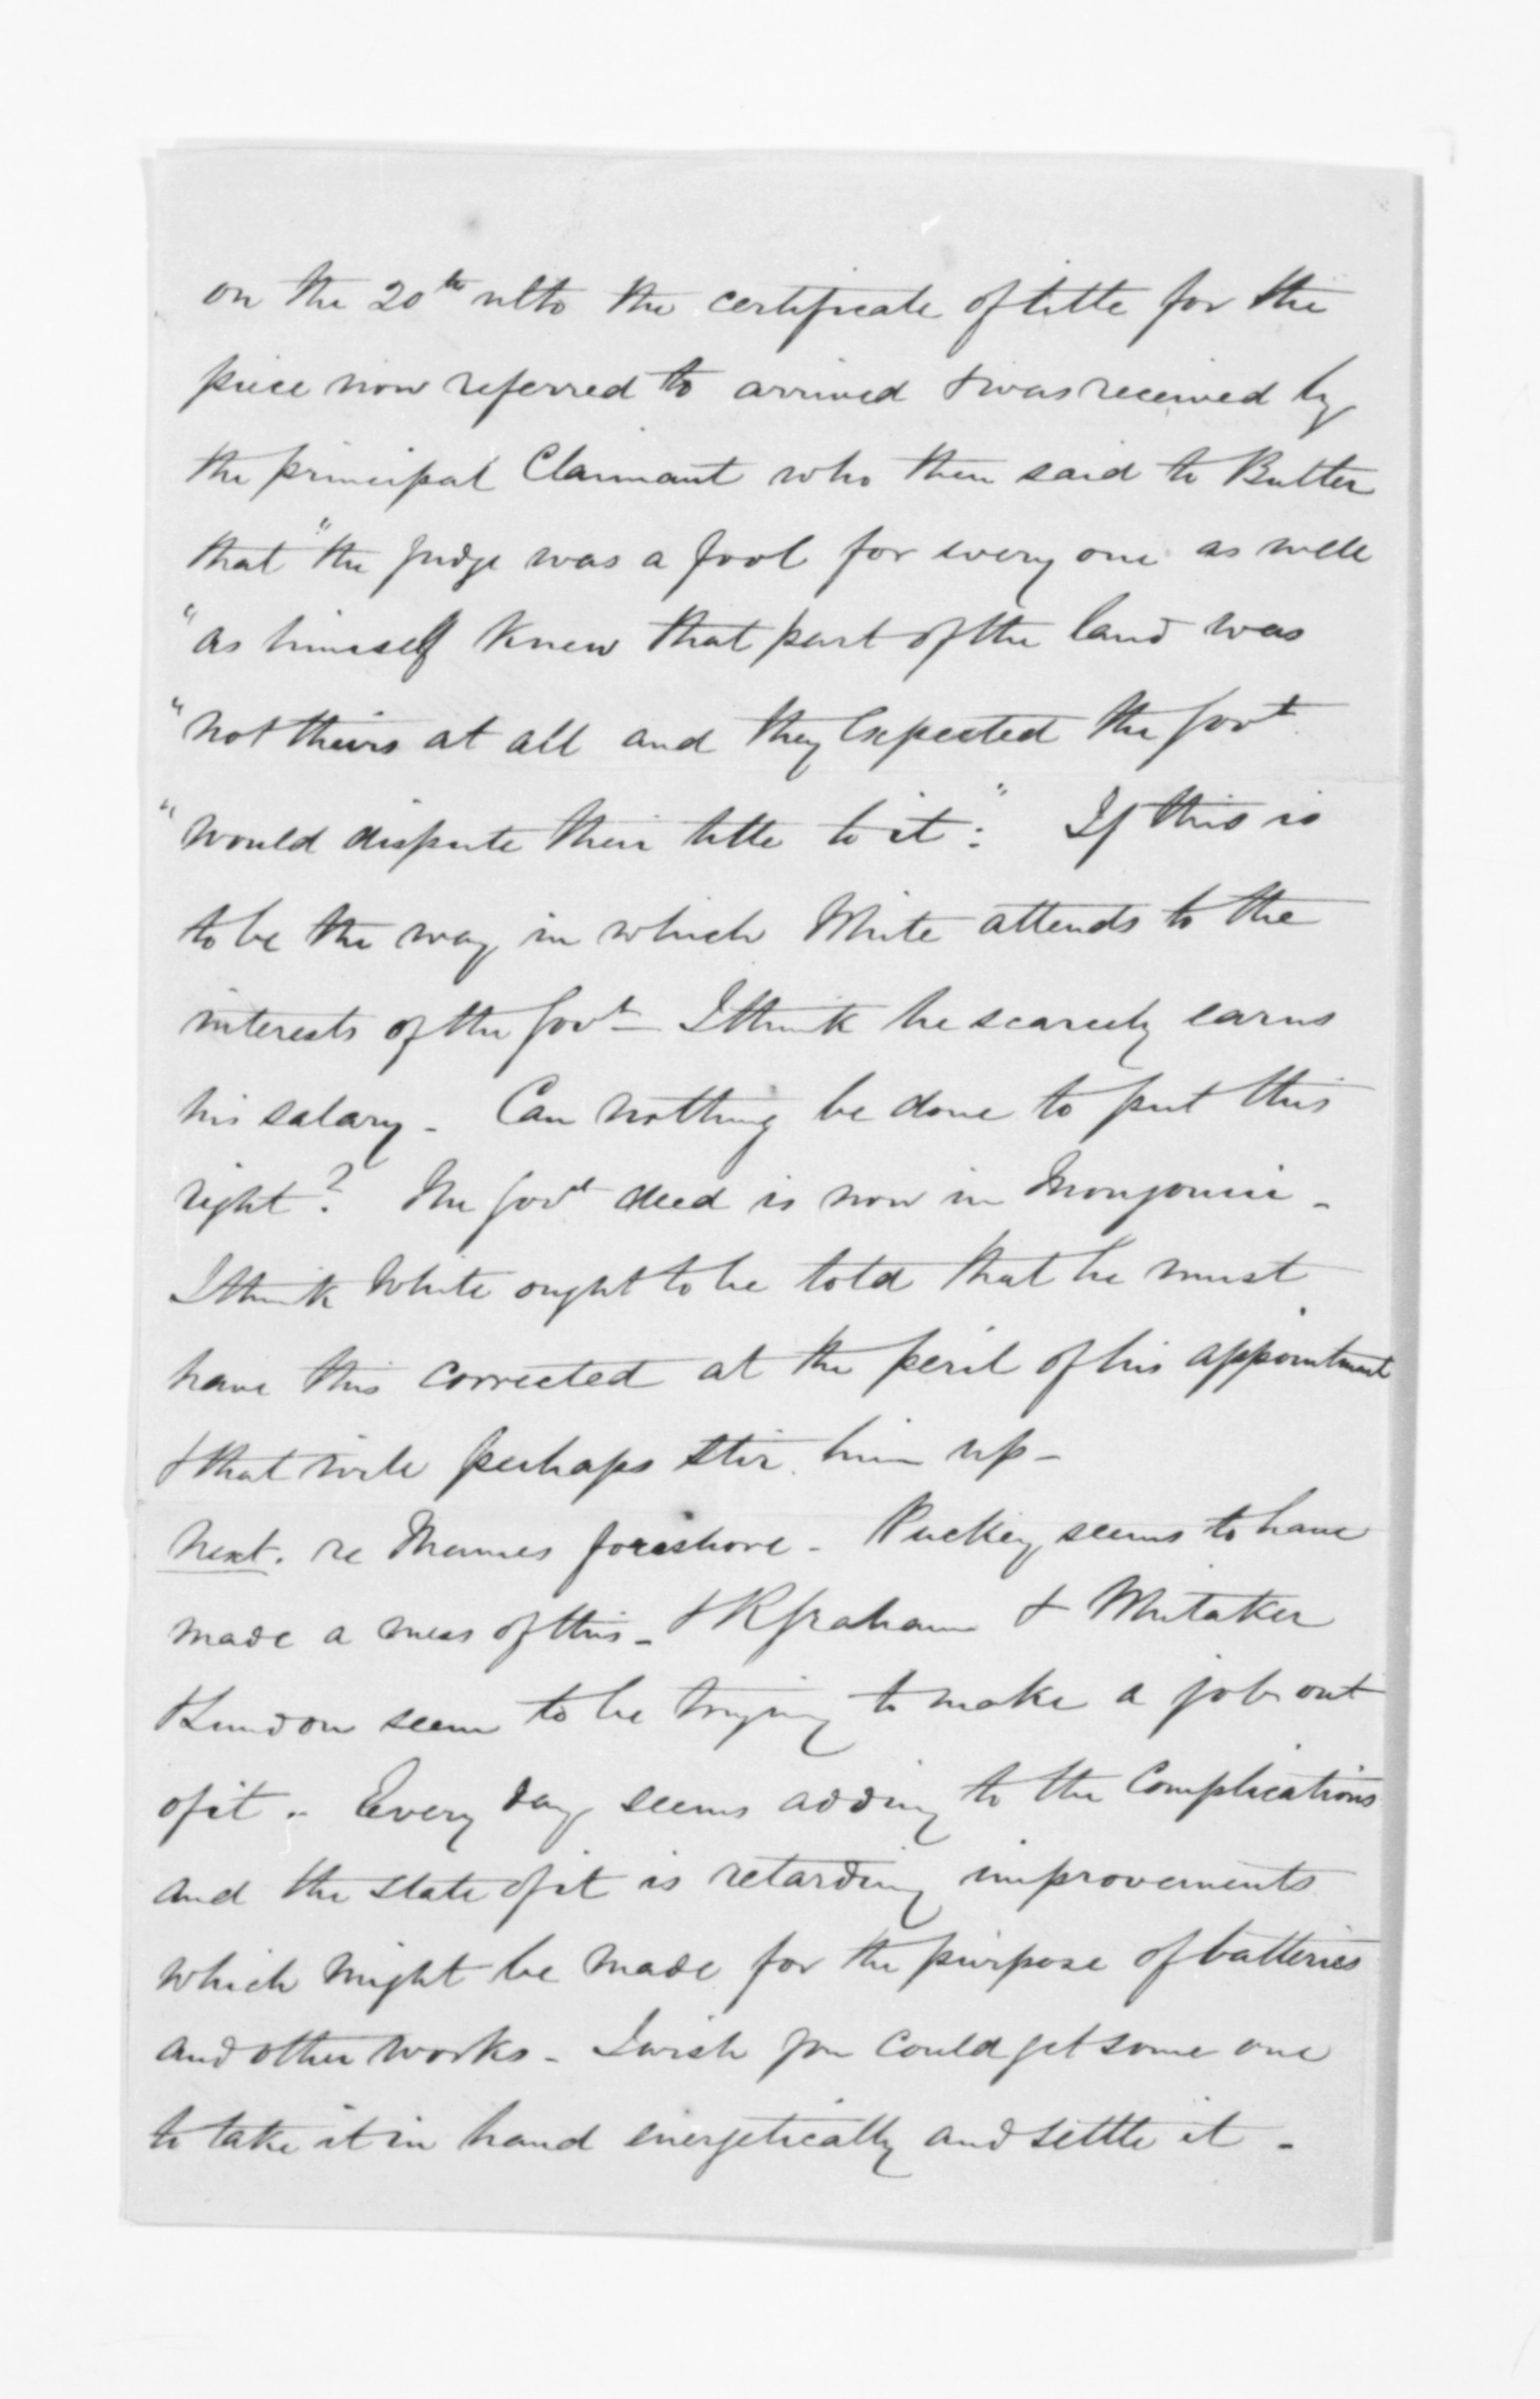 on the 20th ulto the certificate of title for the
piece now referred to arrived & was received by
the principal Claimant who then said to Butler
that "the Judge was a fool for every one as well
"as himself knew that part of the land was
"not theirs at all and they Expected the Govt
"would dispute their title to it:" If this is
to be the way in which White attends to the
interests of the Govt - I think he scarcely earns
his salary - Can nothing be done to put this
right? The Govt deed is now in Mongonui -
I think White ought to be told that he must
have this corrected at the peril of his appointment
& that will perhaps stir him up -
Next. re Thames foreshore - Puckey seems to have
made a mess of this - & R Graham & Whitaker
& Lundon seem to be trying to make a job out
of it - Every day seems adding to the Complications
and the state of it is retarding improvements
which might be made for the purpose of batteries
and other works - I wish you could get some one
to take it in hand energetically and settle it -